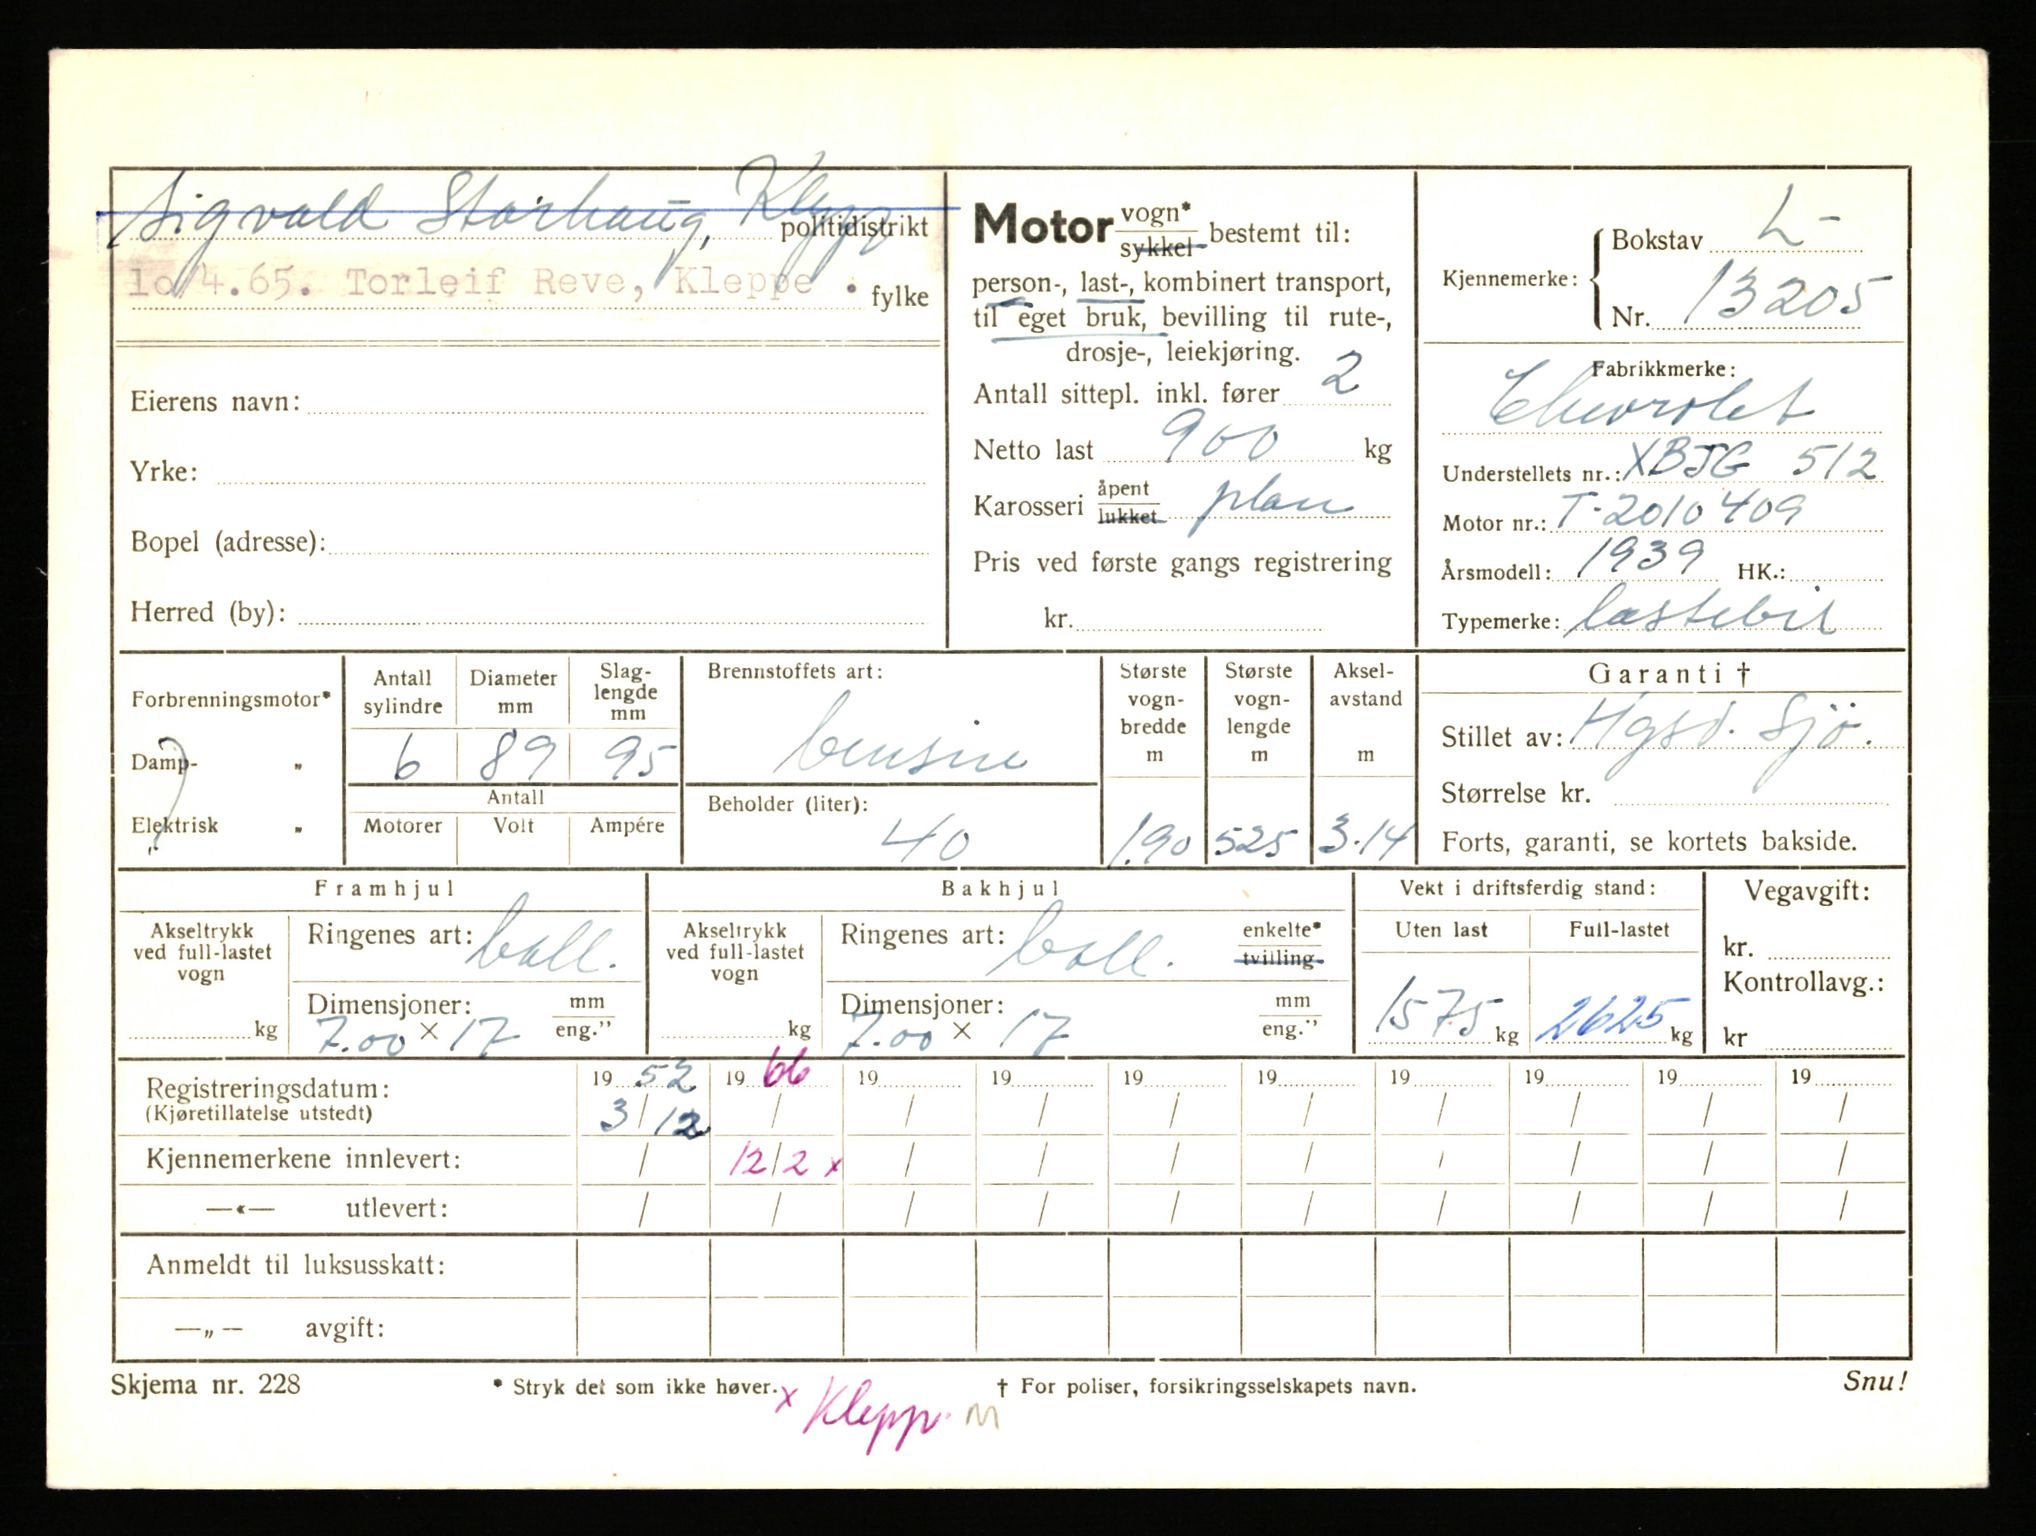 Sigvald Storhaug, Klepp politidistrikt
10/4.65. Torleif Reve, Kleppe. fylke
Eierens navn:
Yrke:
Bopel (adresse):
Herred (by):
Motor vogn* sykkel bestemt til:
person-, last-, kombinert transport,
til eget bruk, bevilling til rute-,
drosje-, leiekjøring.
Antall sittepl. inkl. fører 2
Netto last 900 kg
Karosseri åpent lukket plan
Pris ved første gangs registrering
kr.
Kjennemerke: Bokstav L-
Nr. 13205
Fabrikkmerke:
Chevrolet
Understellets nr.: XBJG 512
Motor nr.: T-2010409
Årsmodell: 1939 HK.:
Typemerke: lastebil
Forbrenningsmotor*
Damp- „
Elektrisk „
Antall sylindre
Diameter mm
Slag-lengde mm
6 89 95
Antall
Motorer Volt Ampére
Brennstoffets art:
bensin
Beholder (liter):
40
Største vogn-bredde m
1.90
Største vogn-lengde m
525
Aksel-avstand m
3.14
Garanti †
Stillet av: Hgsd. Sjø.
Størrelse kr.
Forts, garanti, se kortets bakside.
Framhjul
Akseltrykk ved full-lastet vogn
kg
Ringenes art: ball.
Dimensjoner: mm eng.”
7.00 × 17
Bakhjul
Akseltrykk ved full-lastet vogn
kg
Ringenes art: ball. enkelte* tvilling
Dimensjoner: mm eng.”
7.00 × 17
Vekt i driftsferdig stand:
Uten last Full-lastet
1575 kg 2625 kg
Vegavgift:
kr.
Kontrollavg.:
kr
Registreringsdatum: 19 52 19 66 19 19 19 19 19 19 19 19
(Kjøretillatelse utstedt) 3/12 / / / / / / / / /
Kjennemerkene innlevert: / 12/2 x / / / / / / / /
—«— utlevert: / / / / / / / / / /
Anmeldt til luksusskatt:
—„— avgift:
Skjema nr. 228 * Stryk det som ikke høver. † For poliser, forsikringsselskapets navn. Snu!
x Klepp. M